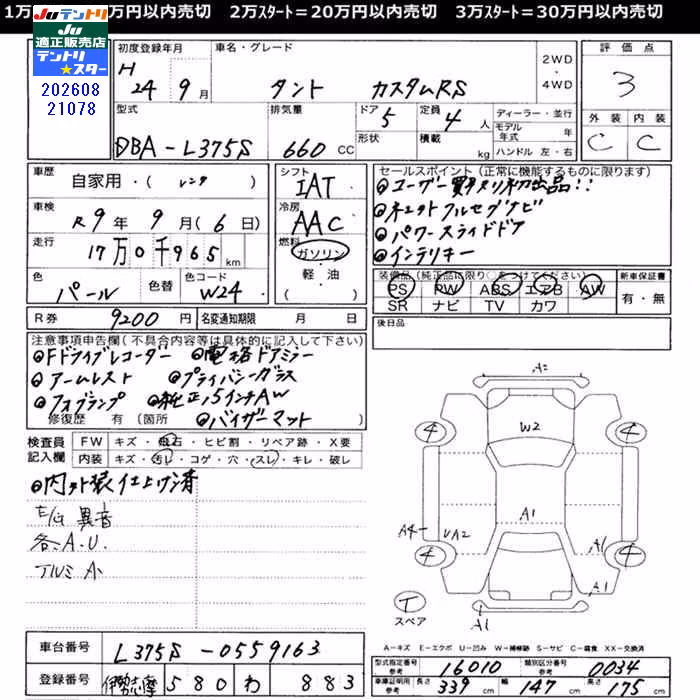 1万 万円以内売切 2万スタート＝20万円以内売切 3万スタート＝30万円以内売切
JUテントリ
JU
適正販売店
テントリ
★スター
202608
21078
初度登録年月
H
24 9 月
車名・グレード
タント カスタムRS
2WD
・
4WD
評価点
3
外装 内装
C C
型式
DBA-L375S
排気量
660 CC
ドア 5
形状
定員 4 人
積載 kg
ディーラー・並行
モデル年式 年
ハンドル 左・右
車歴
自家用・( レンタ )
シフト
IAT
車検
R 9 年 9 月 ( 6 日)
冷房
AAC
走行
17万0千965 km
燃料
ガソリン
・
軽・油
色
パール
色替
色コード
W24
R券 9200 円
名変通知期限 月 日
セールスポイント(正常に機能するものに限ります)
ユーザー買取り初出品!!
ネェット フルセグナビ
パワースライドドア
インテリキー
装備品(純正品に限り○をつけてください)
PS PW ABS エアB AW
SR ナビ TV カワ
新車保証書
有・無
後日品
注意事項申告欄(不具合内容等は具体的に記入して下さい)
Fドライブレコーダー 電格ドアミラー
アームレスト プライバシーガラス
フォグランプ 純正15インチAW
修復歴 有 (箇所 バイザーマット
検査員
記入欄
FW キズ・飛石・ヒビ割・リペア跡・X要
内装 キズ・汚レ・コゲ・穴・スレ・キレ・破レ
内外装仕上げ済
異音
各A.U.
アルミ A
4 4
W2
A1
A4 UA2
A1
4 4
A1
T
スペア
A1
A－キズ E－エクボ U－凹み W－補修跡 S－サビ C－腐食 XX－交換済
車台番号 L375S-0559163
登録番号 伊勢志摩 580 わ 883
型式指定番号
参考
16010
類別区分番号
参考
0034
車庫証明用
参考
長さ 339 cm 幅 147 cm 高さ 175 cm